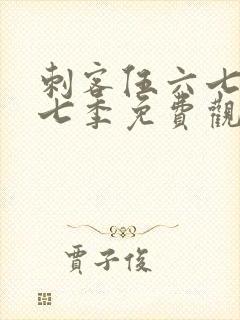 刺客伍六七
七季免費觀
賈子俊